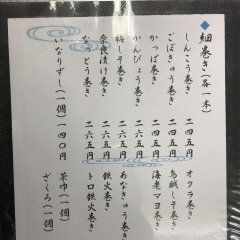 ◆細巻き(各一本)
しんこう巻き 二四五円
ごぼきゅう巻き 二四五円
かっぱ巻き 二四五円
かんぴょう巻き 二四五円
梅しそ巻き 二六五円
奈良漬け巻き 二六五円
なっとう巻き 二六五円
いなりずし(一個) 四〇円
オクラ巻き
烏賊しそ巻き
海老マヨ巻き
あなきゅう巻き
鉄火巻き
トロ鉄火巻き
茶ゆ(一個)
ざくろ(一個)